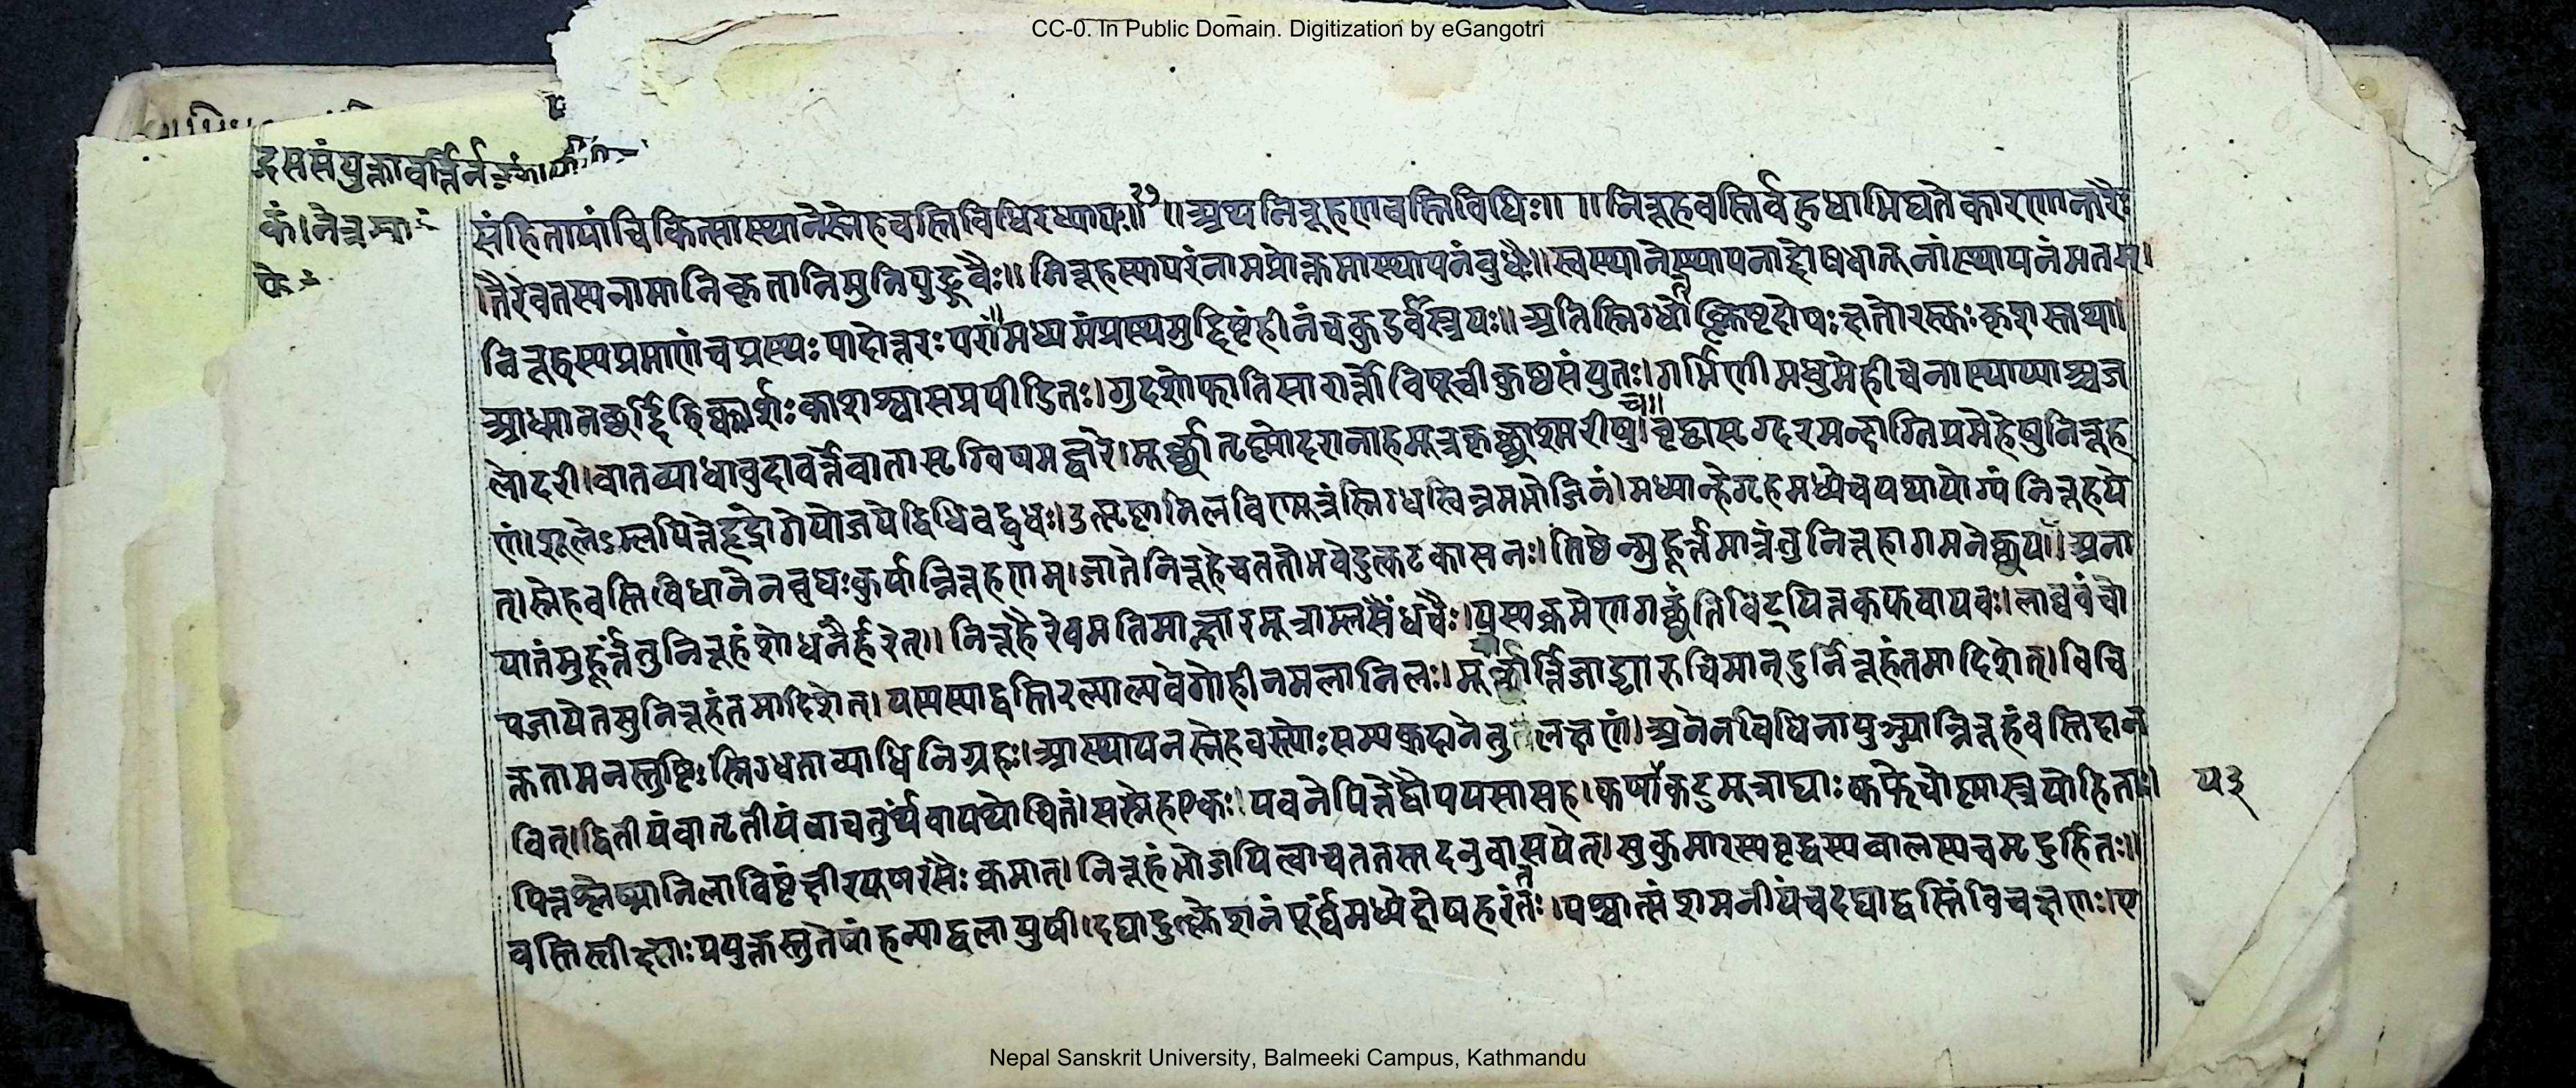 CC-0. In Public Domain. Digitization by eGangotri
संहितायांचिकित्सास्थानेस्नेहवस्तिविधिरध्यायः॥२१॥अथनिरूहणवस्तिविधिः॥ ॥निरूहवस्तिर्वहुधाभिद्यतेकारणान्तरैः
तैरेवतस्यनामानिकृतानिमुनिपुङ्गवैः॥निरूहस्यापरंनामप्रोक्तमास्थापनंवुधैः॥स्वस्थानेस्थापनाद्दोषधातूनांस्थापनंमतम्।
निरूहस्यप्रमाणंचप्रस्थःपादोत्तरःपरं॥मध्यमंप्रस्थमुद्दिष्टंहीनंचकुडवैस्त्रयः॥अतिस्निग्धोत्क्लिष्टदोषःक्षतोरस्कःकृशस्तथा।
आध्मानछर्दिहिक्कार्शःकाशश्वासप्रपीडितः।गुदशोफातिसारार्त्तोविषूचीकुष्ठसंयुतः।गर्भिणीमधुमेहीचनास्थाप्याश्चज
लोदरी।वातव्याधावुदावर्त्तेवातासृग्विषमज्वरे।मूर्छातृष्णोदरानाहमूत्रकृछ्राश्मरीषुच॥वृद्धासृग्दरमन्दाग्निप्रमेहेषुनिरूह
णं।शूलेऽम्लपित्तेहृद्रोगेयोजयेद्विधिवद्वुधः।उत्सृष्टानिलविण्मूत्रंस्निग्धस्विन्नमभोजिनं।मध्यान्हेगृहमध्येचयथायोग्यंनिरूहये
त्।स्नेहवस्तिविधानेनवुधःकुर्यान्निरूहणम्।जातेनिरूहेचततोभवेदुत्कटकासनः।तिष्ठेन्मुहूर्त्तमात्रंतुनिरूहागमनेछया।अना
यातंमुहूर्त्तंतुनिरूहंशोधनैर्हरेत्॥निरूहैरेवमतिमान्क्षारमूत्राम्लसैंधवैः।यस्यक्रमेणगछंतिविट्पित्तकफवायवः।लाघवंचो
पजायेतसुनिरूहंतमादिशेत्।यस्यस्याद्वस्तिरल्पाल्पवेगोहीनमलानिलः।मूर्छार्त्तिजाड्यारुचिमान्दुर्निरूहंतमादिशेत्।विवि
क्ततामनस्तुष्टिःस्निग्धताव्याधिनिग्रहः।आस्थापनस्नेहवस्त्योःसम्यक्दानेतुलक्षणं।अनेनविधिनायुञ्ज्यान्निरूहंवस्तिदान
वित्।द्वितीयंवातृतीयंवाचतुर्थंवायथोचितं।सस्नेहएकः।पवनेपित्तेद्वौपयसासह।कषायकटुमूत्राद्याःकफेचोष्णास्त्रयोहिताः।
५३
पित्तश्लेष्मानिलाविष्टंक्षीरयूषरसैःक्रमात्।निरूहंभोजयित्वाचततस्तदनुवासयेत्।सुकुमारस्यवृद्धस्यवालस्यचमृदुर्हितः॥
वस्तिस्तीक्ष्णःप्रयुक्तस्तुतेषांहन्याद्वलायुषी।दद्यादुत्क्लेशनंपूर्वंमध्येदोषहरंततः।पश्चात्संशमनीयंचदद्याद्वस्तिंविचक्षणः।ए
Nepal Sanskrit University, Balmeeki Campus, Kathmandu